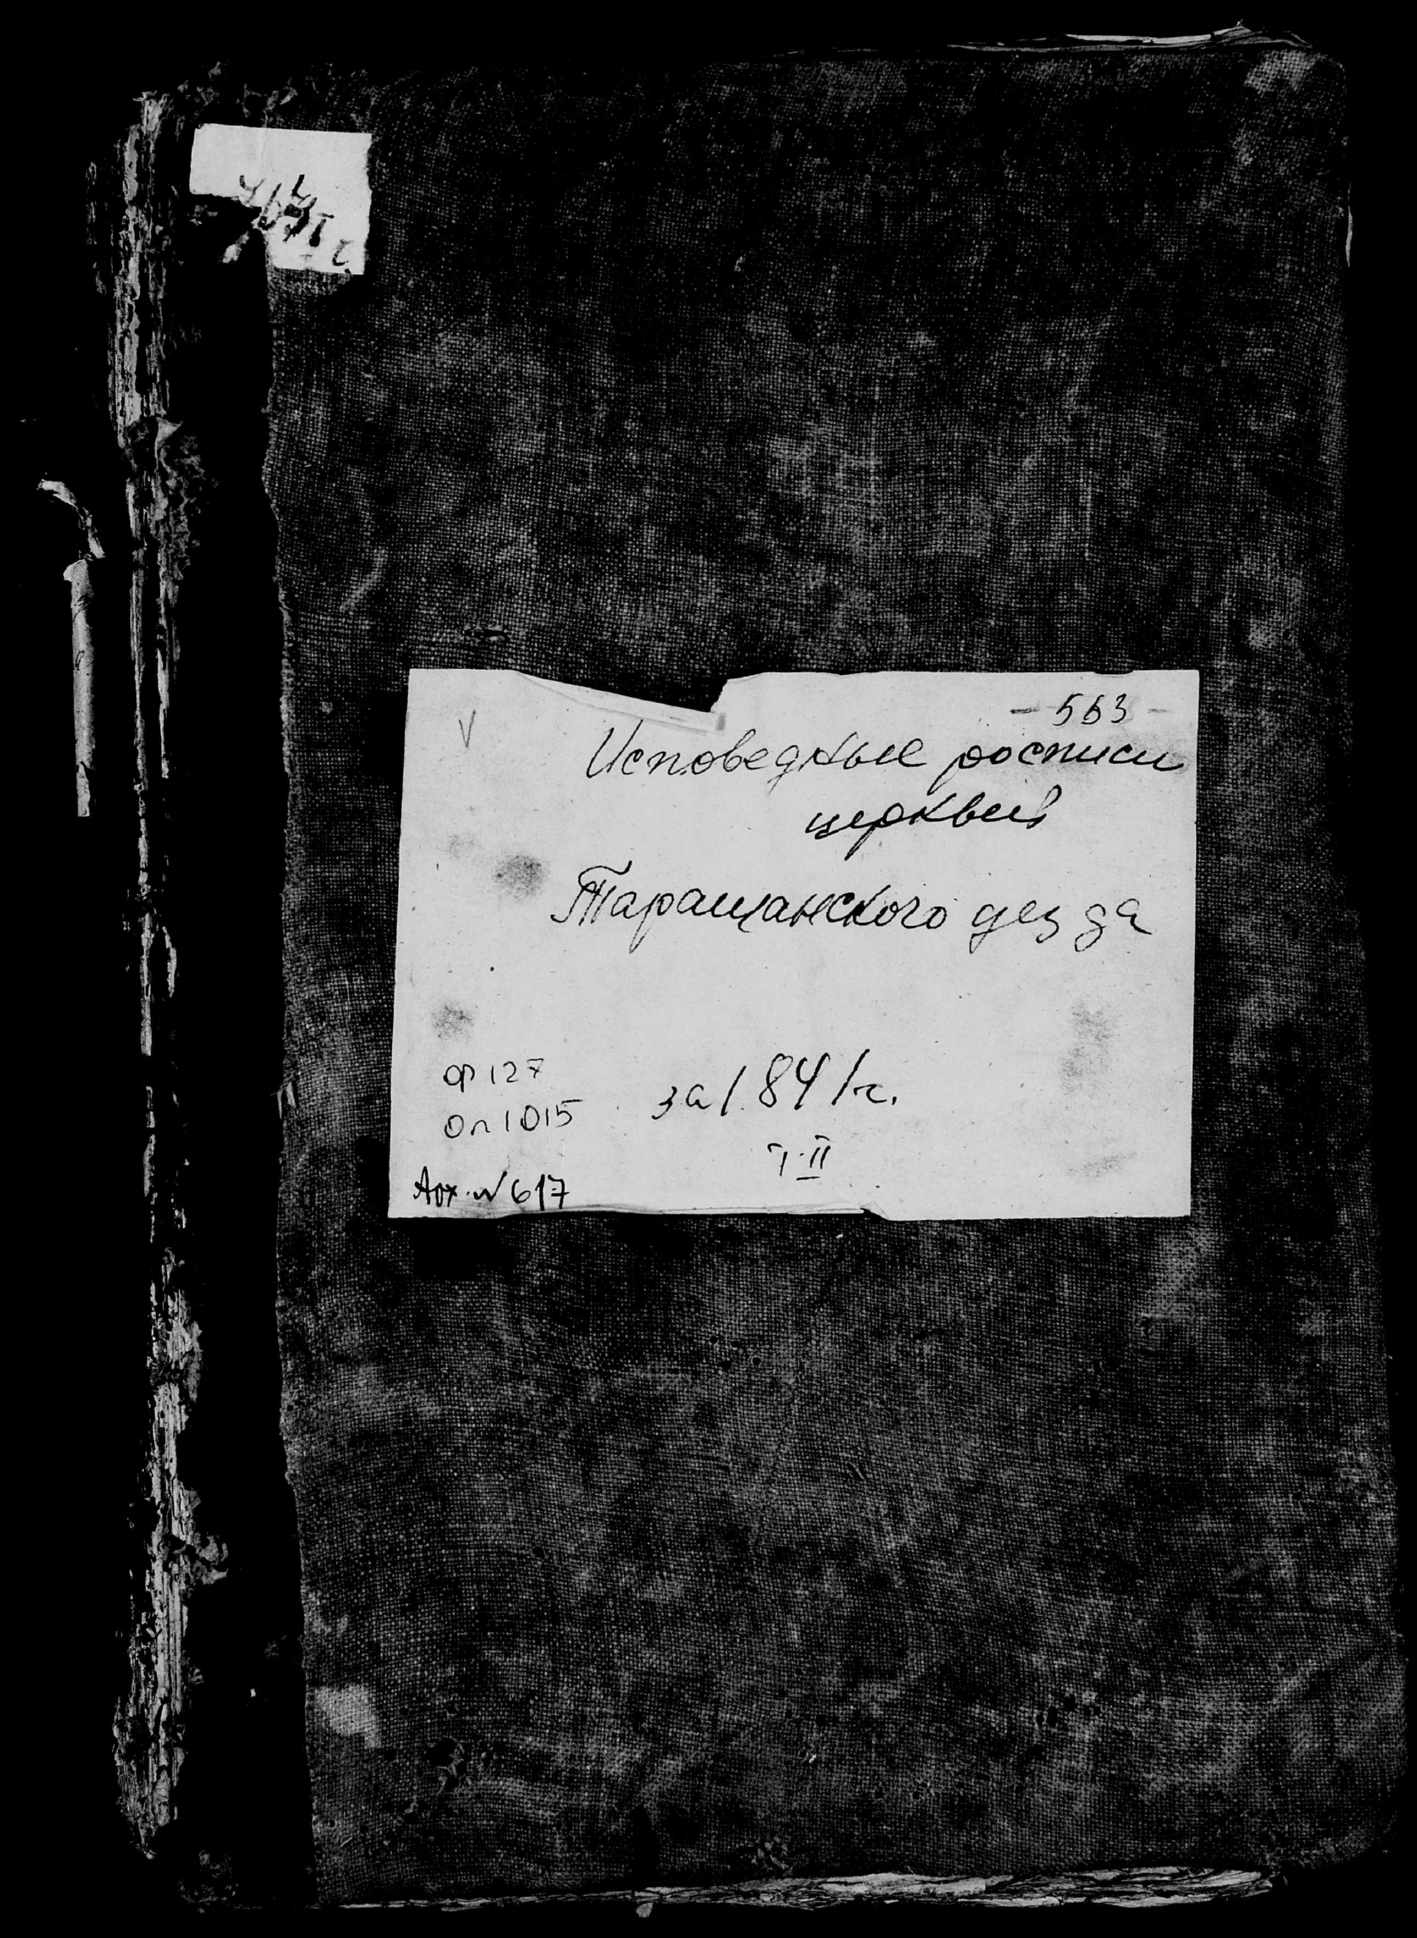 - 563 -
V
Исповедные росписи
церквей
Таращанского уезда
ф 127
за 1841 г.
Оп 1015
I-II
Арх. № 617